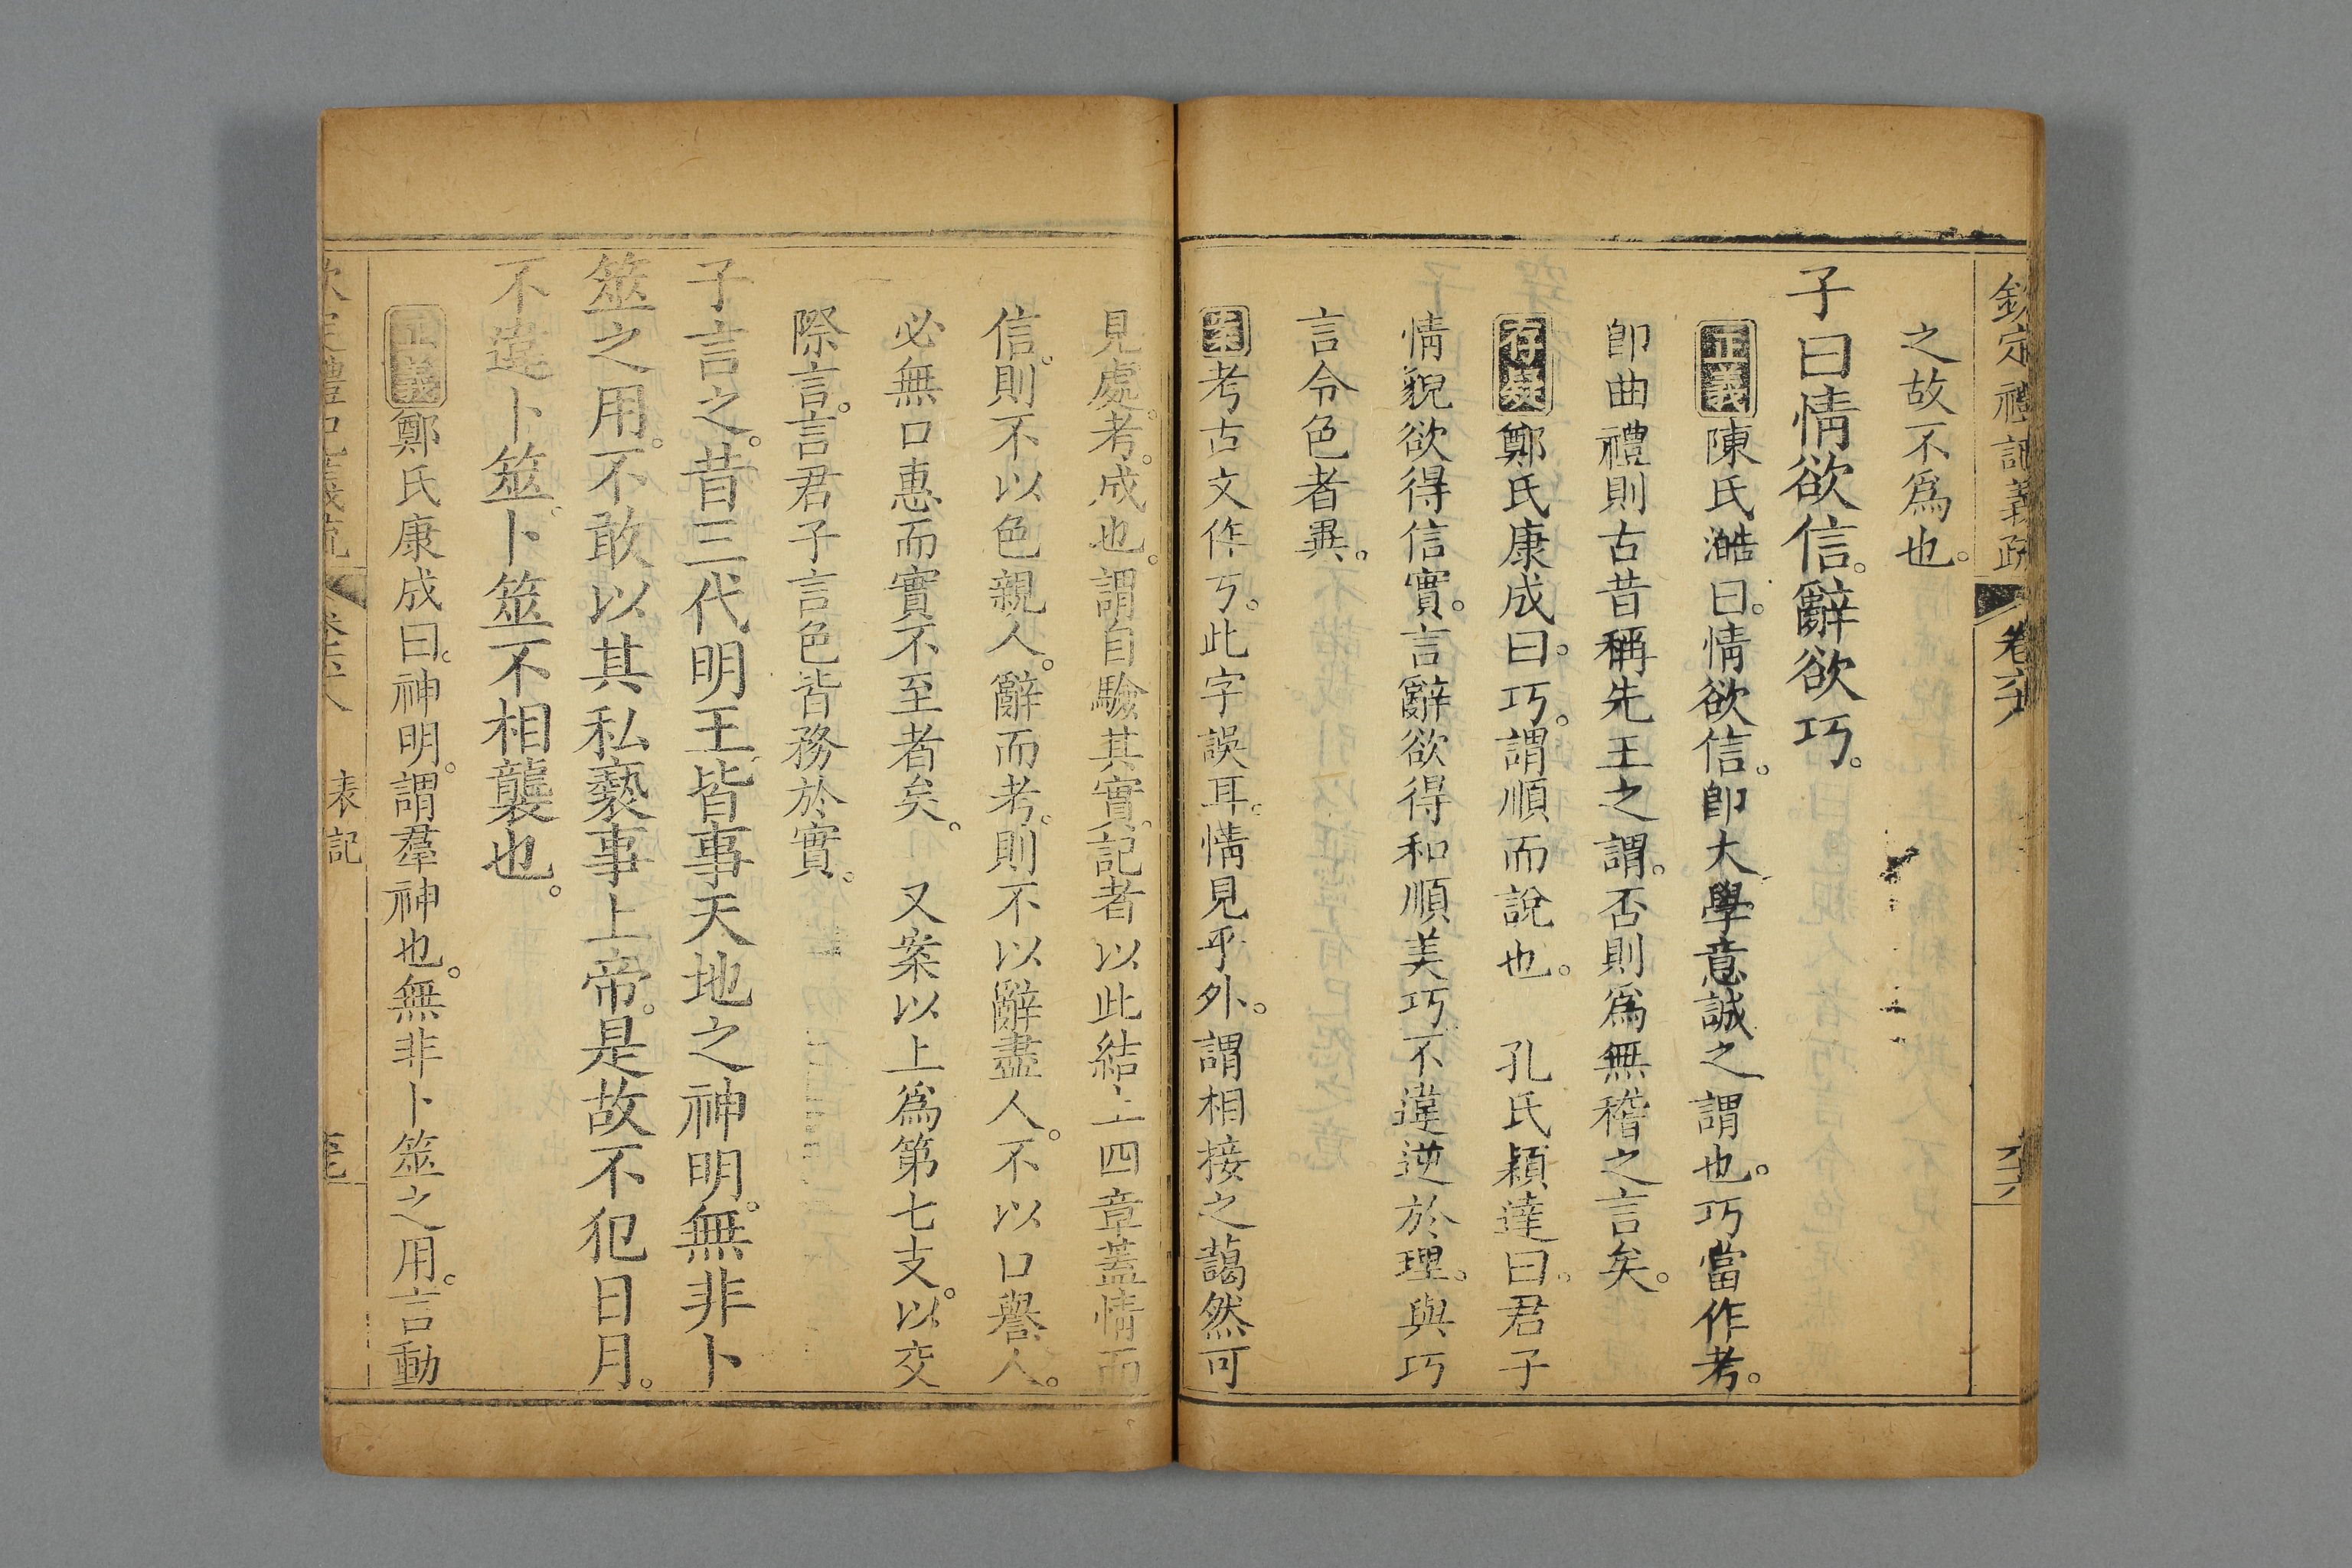 欽定禮記義疏 卷六十八 六六
之故不爲也。
子曰情欲信。辭欲巧。
正義陳氏澔曰。情欲信。卽大學意誠之謂也。巧當作考。
卽曲禮則古昔稱先王之謂。否則爲無稽之言矣。
存疑鄭氏康成曰。巧。謂順而說也。 孔氏穎達曰。君子
情貌欲得信實。言辭欲得和順美巧。不違逆於理。與巧
言令色者異。
考古文作丂。此字誤耳。情見乎外。謂相接之藹然可
見處。考。成也。謂自驗其實。記者以此結上四章蓋情而
信。則不以色親人。辭而考。則不以辭盡人。不以口譽人。
必無口惠而實不至者矣。 又案以上爲第七支。以交
際言。言君子言色皆務於實。
子言之。昔三代明王皆事天地之神明。無非卜
筮之用。不敢以其私褻事上帝。是故不犯日月。
不違卜筮。卜筮不相襲也。
正義鄭氏康成曰。神明。謂羣神也。無非卜筮之用。言動
表記